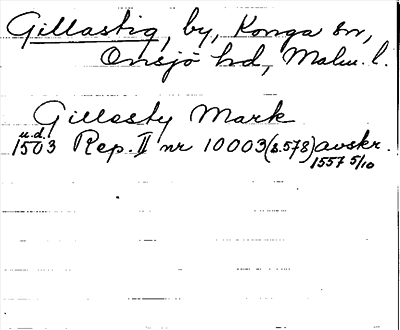 Gillastig, by, Konga sn,
Onsjö hd, Malm. l.
Gillasty Mark
u.d.
1503 Rep. II nr 10003 (s. 578) avskr.
1557 5/10